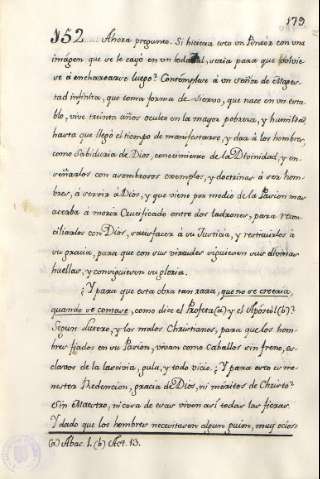 179
152 .... Ahora pregunto. Si hiciera eso un Pintor con una
imágen que se le cayó en un lodazal, sería para que volvie-
se á encharcarse luego? Contémplese á un Señor de Mages-
tad infinita, que toma forma de Siervo, que nace en un esta-
blo, vive treinta años oculto en la mayor pobreza, y humildad
hasta que llegó el tiempo de manifestarse, y dar á los hombres,
como Sabiduria de Dios, conocimiento de la Divinidad, y en-
señarlos con asombrosos exemplos, y doctrinas á ser hom-
bres, á servir á Dios, y que viene por medio de la Pasion mas
acerba á morir Crucificado entre dos ladrones, para recon-
ciliarlos con Dios, satisfacer á su Justicia, y restituirlos á
su gracia, para que con sus virtudes siguiesen sus divinas
huellas, y consiguiesen su gloria.
¿Y para que esta obra tan rara, que no se creeria,
quando se contase, como dice el Profeta (a) y el Apóstol (b)?
Segun Lutero, y los malos Christianos, para que los hom-
bres fiados en su Pasión, vivan como caballos sin freno, es-
clavos de la lascivia, gula, y todo vicio. ¿Y para esto es me-
nester Redencion, gracia de Dios, ni méritos de Christo?
Sin Maestro, ni cosa de esas viven así todas las fieras.
Y dado que los hombres necesitasen algun guion, muy ocios
(a) Abac. 1. (b) Act. 13.